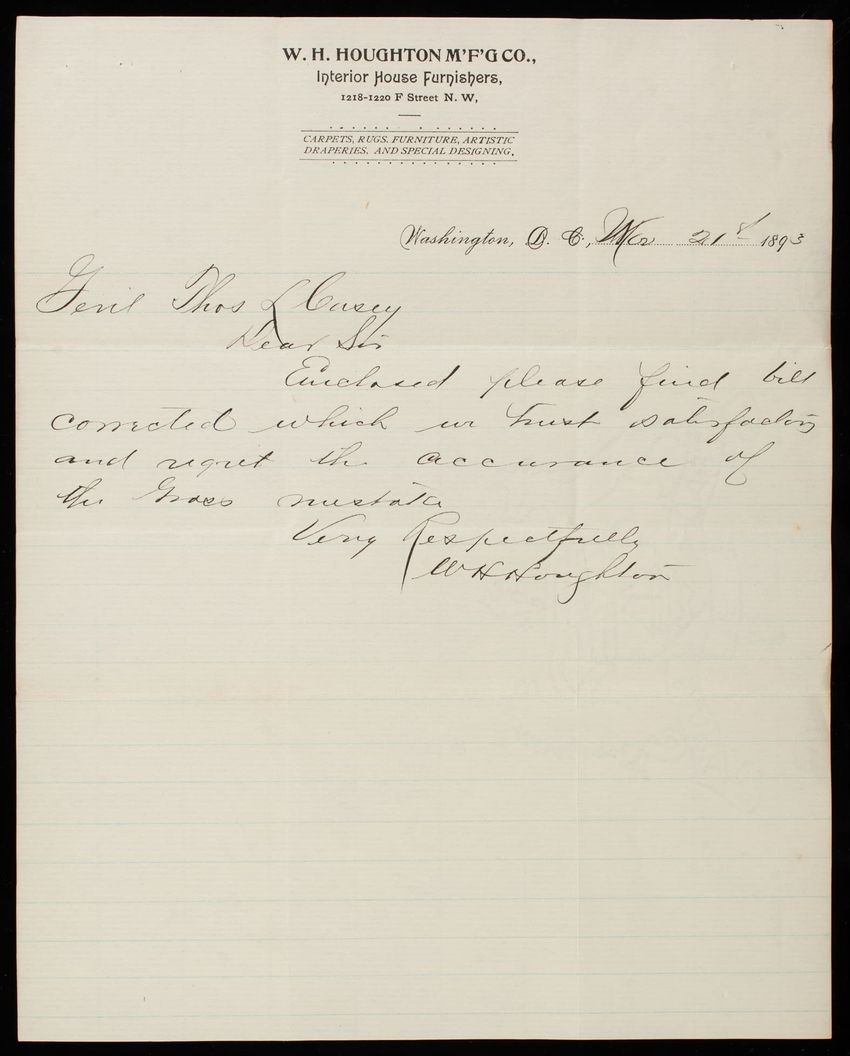 W. H. HOUGHTON M'F'G CO.,
Interior House Furnishers,
1218-1220 F Street N. W,
CARPETS, RUGS, FURNITURE, ARTISTIC
DRAPERIES, AND SPECIAL DESIGNING.
Washington, D. C., Mar 21st 1893
Genl Thos L Casey
Dear Sir
Enclosed please find bill
corrected which we trust satisfactory
and regret the accurance of
the Gross mistake
Very Respectfully
W H Houghton